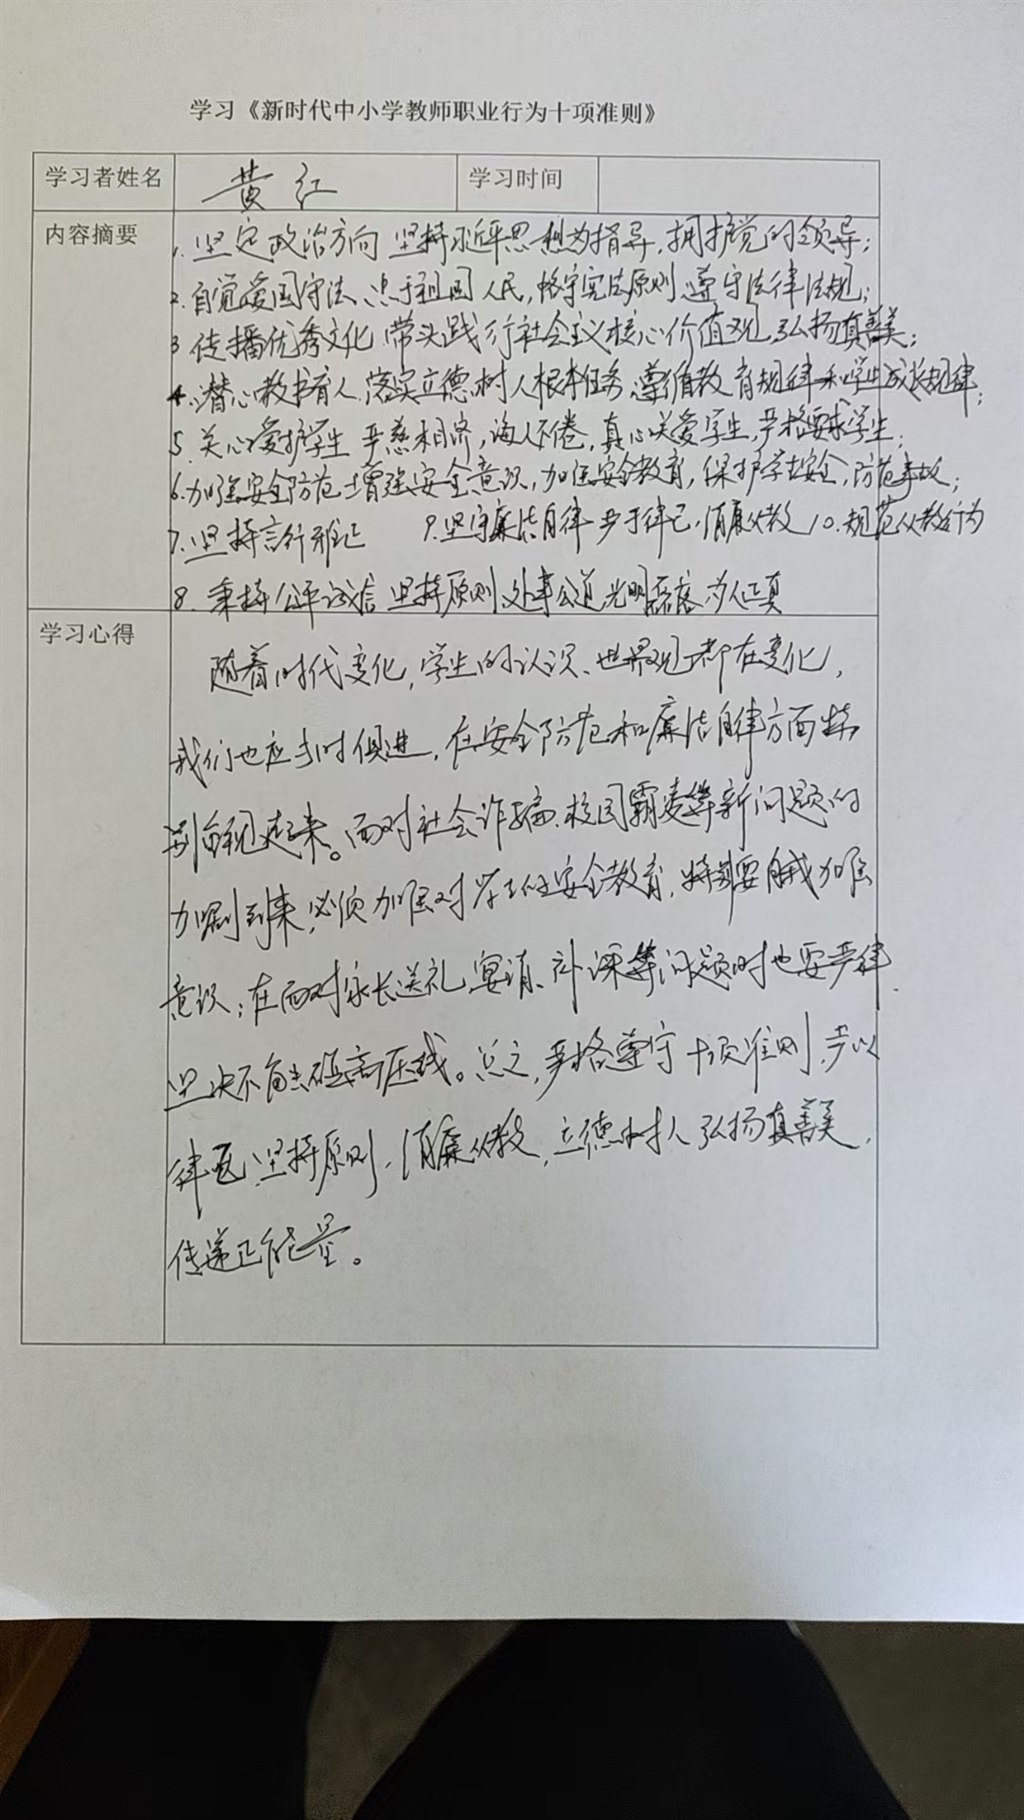 学习《新时代中小学教师职业行为十项准则》
学习者姓名 黄红 学习时间
内容摘要
1. 坚定政治方向 坚持习近平思想为指导,拥护党的领导;
2. 自觉爱国守法、忠于祖国人民,恪守宪法原则、遵守法律法规;
3 传播优秀文化 带头践行社会主义核心价值观,弘扬真善美;
4. 潜心教书育人,落实立德树人根本任务,遵循教育规律和学生成长规律;
5. 关心爱护学生 严慈相济,诲人不倦,真心关爱学生,严格要求学生;
6. 加强安全防范 增强安全意识,加强安全教育,保护学生安全,防范事故;
7. 坚持言行雅正 9. 坚守廉洁自律 严于律己,清廉从教 10. 规范从教行为
8. 秉持公平诚信 坚持原则,处事公道,光明磊落,为人正真
学习心得
随着时代变化,学生的认识、世界观都在变化,
我们也应与时俱进,在安全防范和廉洁自律方面特
别重视起来。面对社会诈骗、校园霸凌等新问题的
加剧到来,必须加强对学生的安全教育,特别要自我加强
意识;在面对家长送礼、宴请、补课等问题时也要严律,
坚决不能去碰高压线。总之,严格遵守十项准则,严以
律己,坚持原则,清廉从教,立德树人 弘扬真善美,
传递正能量。